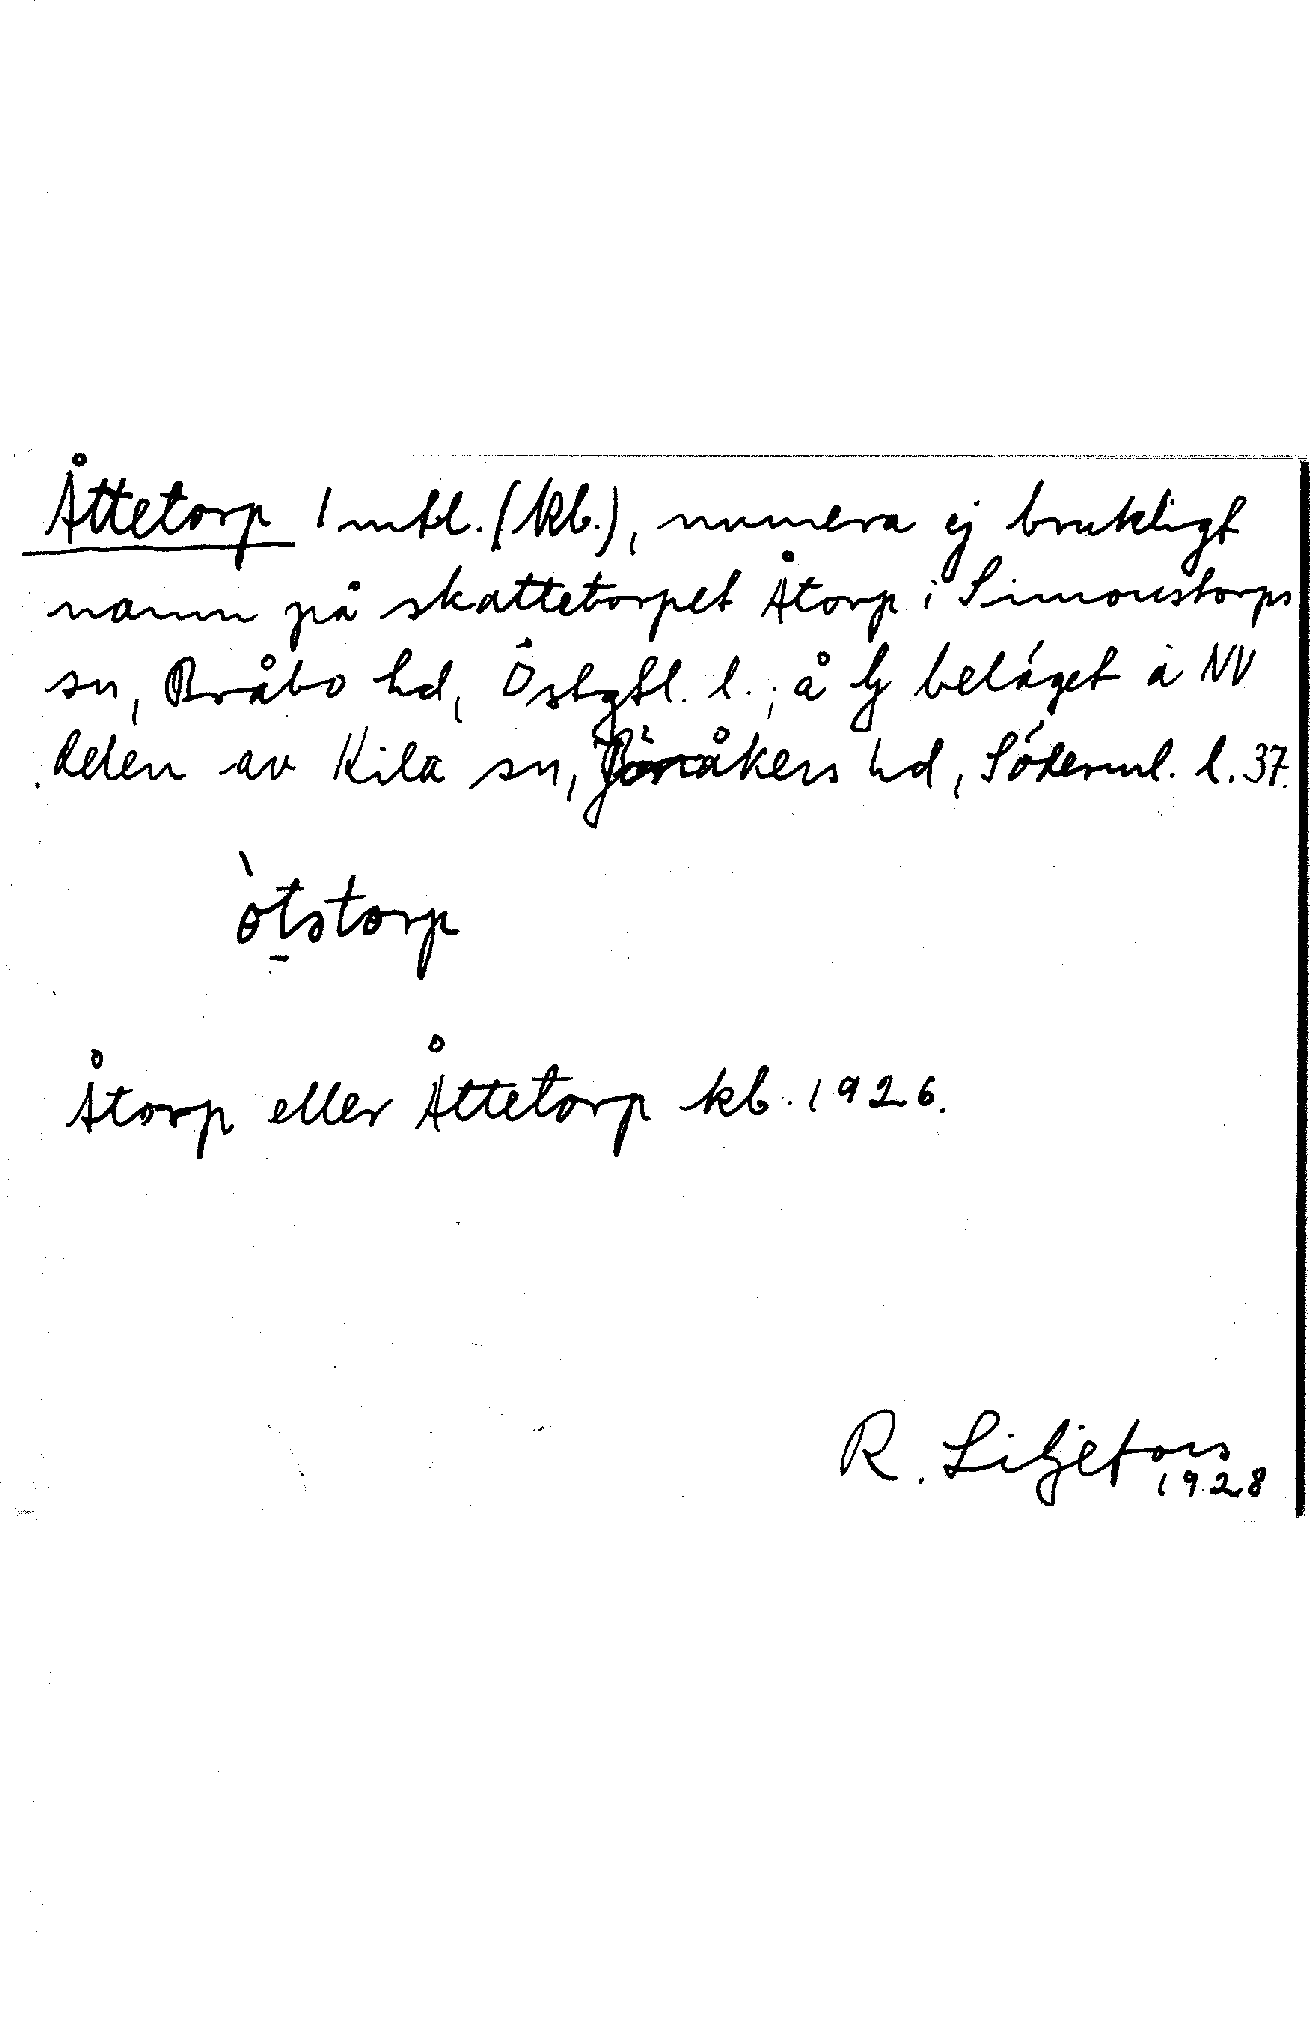 Åttetorp 1 mtl. (kb.), numera ej brukligt
namn på skattetorpet Åtorp i Simonstorps
sn, Bråbo hd, Östgtl. l.; å Ij beläget å NV
delen av Kila sn, Jönåkers hd, Söderml. l. 37.
òtstorp
Åtorp eller Åttetorp kb. 1926.
R. Liljefors
1928